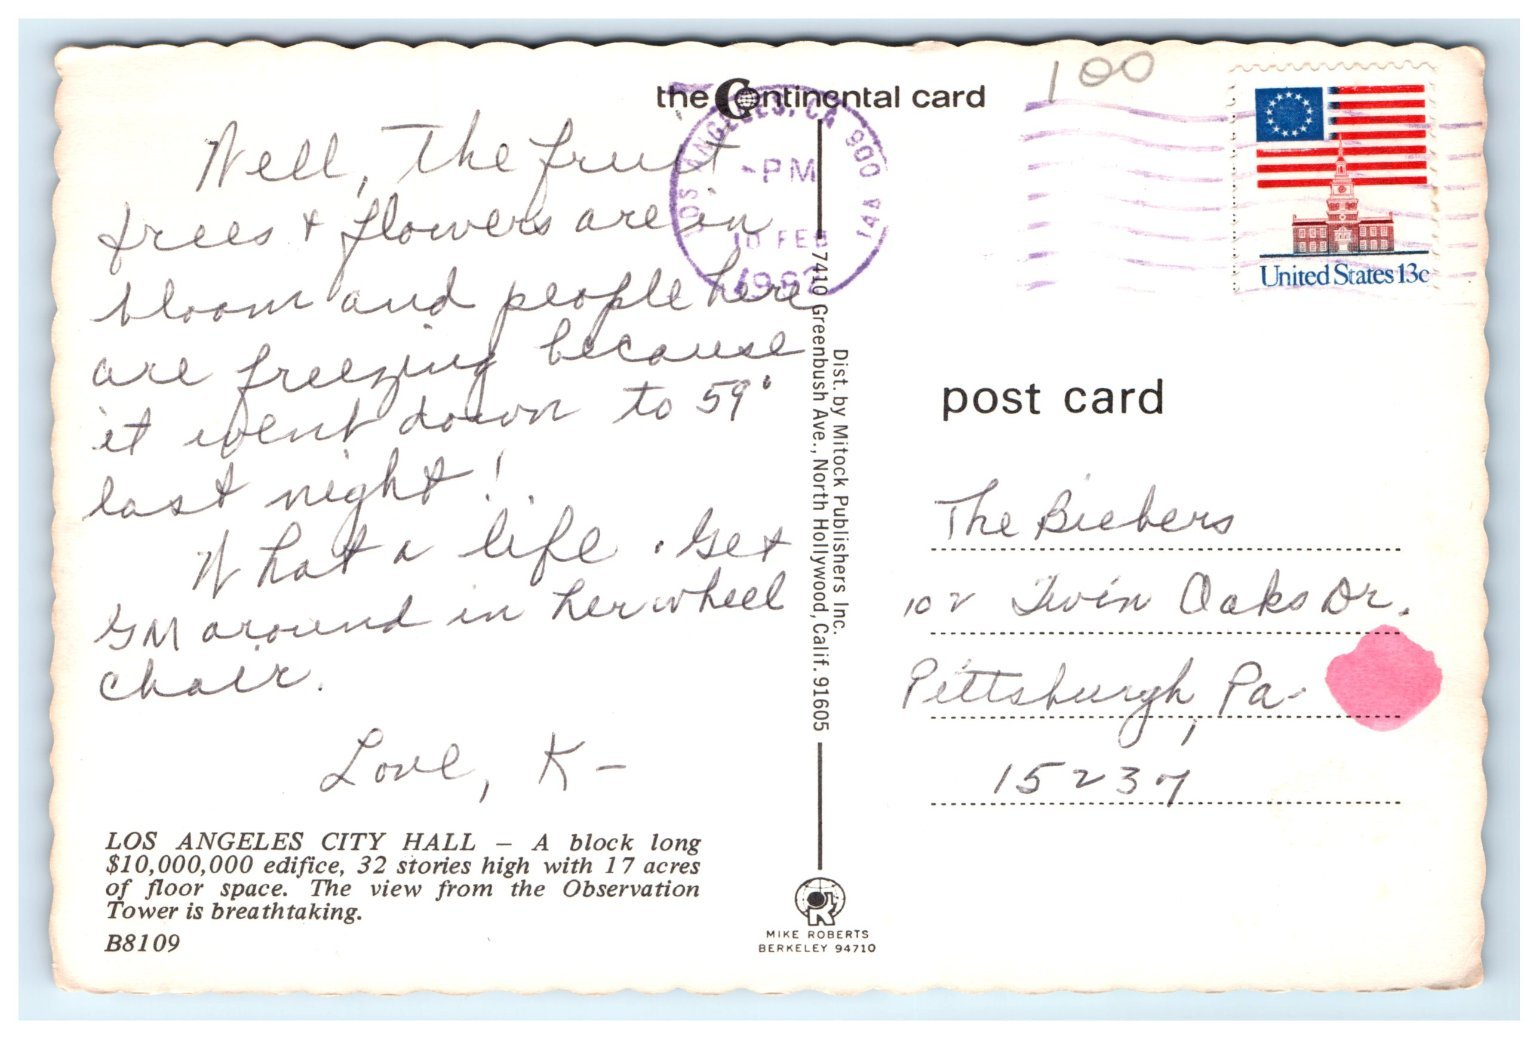 the Continental card
100
LOS ANGELES, CA 900 14A
PM
10 FEB
United States 13c
Well, The fruit
trees + flowers are in
bloom and people here
are freezing because
it went down to 59°
last night!
What a life. Get
GM around in her wheel
chair.
Love, K-
LOS ANGELES CITY HALL – A block long
$10,000,000 edifice, 32 stories high with 17 acres
of floor space. The view from the Observation
Tower is breathtaking.
B8109
Dist. by Mitock Publishers Inc.
7410 Greenbush Ave., North Hollywood, Calif. 91605
MIKE ROBERTS
BERKELEY 94710
post card
The Biebers
102 Twin Oaks Dr.
Pittsburgh, Pa-
15237